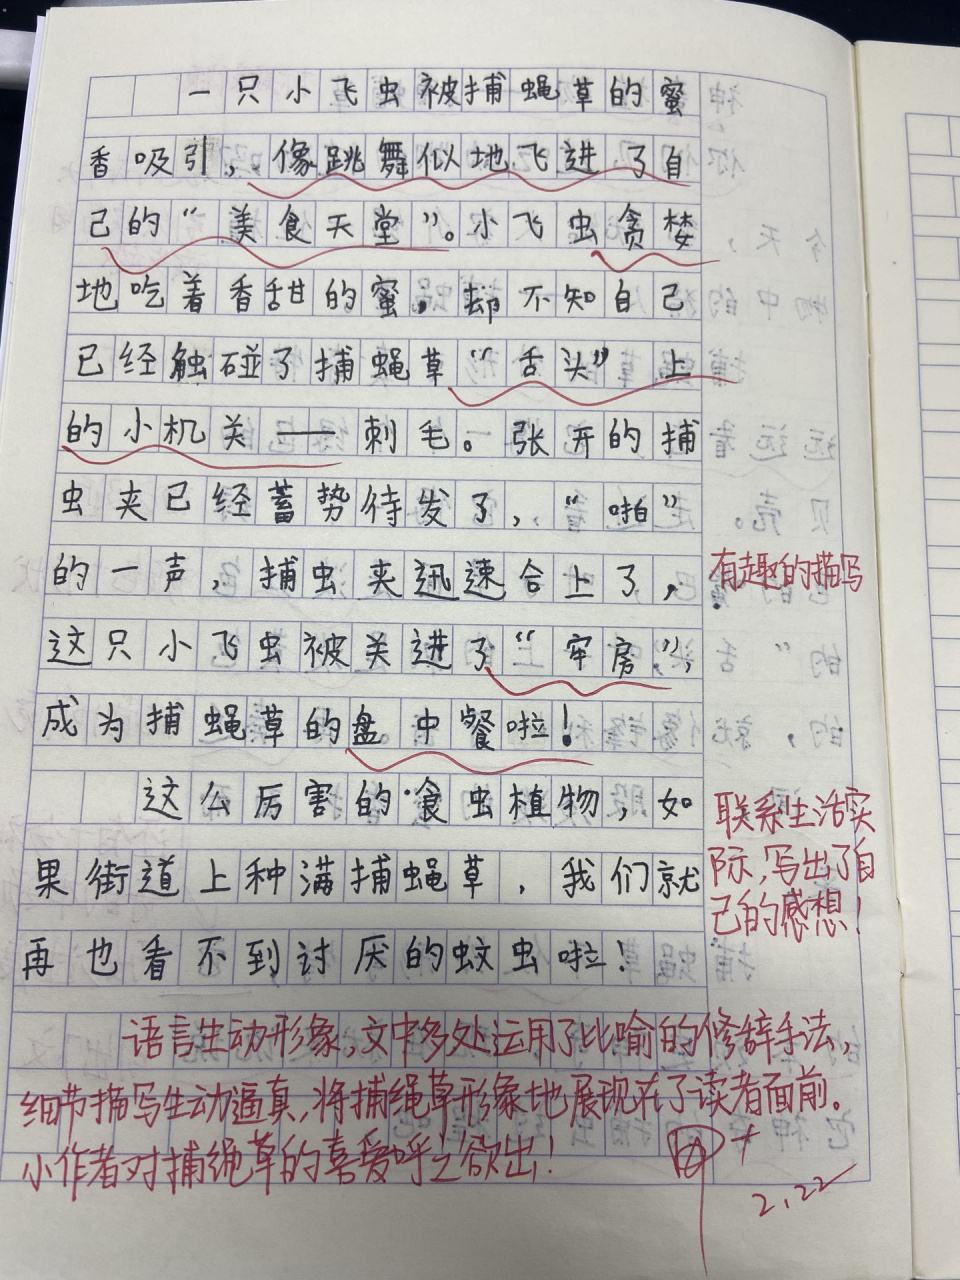 一只小飞虫被捕蝇草的蜜
香吸引，像跳舞似地飞进了自
己的“美食天堂”。小飞虫贪婪
地吃着香甜的蜜，却不知自己
已经触碰了捕蝇草“舌头”上
的小机关——刺毛。张开的捕
虫夹已经蓄势待发了，“啪”
的一声，捕虫夹迅速合上了，
有趣的描写
这只小飞虫被关进了“牢房”，
成为捕蝇草的盘中餐啦！
这么厉害的食虫植物，如
果街道上种满捕蝇草，我们就
再也看不到讨厌的蚊虫啦！
联系生活实
际，写出了自
己的感想！
语言生动形象，文中多处运用了比喻的修辞手法，
细节描写生动逼真，将捕绳草形象地展现在了读者面前。
小作者对捕绳草的喜爱呼之欲出！
2.22